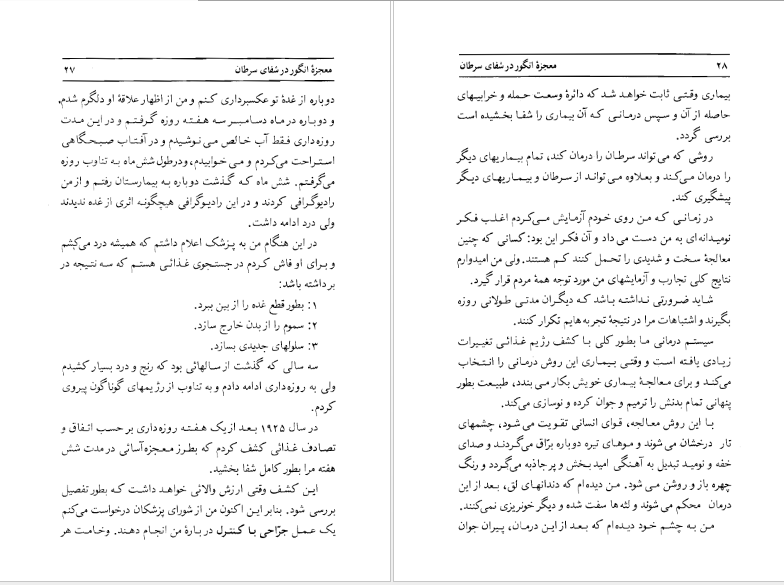 معجزهٔ انگور در شفای سرطان ۲۷
دوباره از غدهٔ تو عکسبرداری کنم و من از اظهار علاقهٔ او دلگرم شدم.
و دوباره در ماه دسامبر سه هفته روزه گرفتم و در این مدت
روزه‌داری فقط آب خالص می‌نوشیدم و در آفتاب صبحگاهی
استراحت می‌کردم و می خوابیدم، ودرطول شش ماه به تناوب روزه
می‌گرفتم. شش ماه که گذشت دوباره به بیمارستان رفتم و از من
رادیوگرافی کردند و در این رادیوگرافی هیچگونه اثری از غده ندیدند
ولی درد ادامه داشت.
در این هنگام من به پزشک اعلام داشتم که همیشه درد می‌کشم
و برای او فاش کردم در جستجوی غذائی هستم که سه نتیجه در
برداشته باشد:
۱: بطور قطع غده را از بین ببرد.
۲: سموم را از بدن خارج سازد.
۳: سلولهای جدیدی بسازد.
سه سالی که گذشت از سالهائی بود که رنج و درد بسیار کشیدم
ولی به روزه‌داری ادامه دادم و به تناوب از رژیمهای گوناگون پیروی
کردم.
در سال ۱۹۲۵ بعد از یک هفته روزه‌داری بر حسب اتفاق و
تصادف غذائی کشف کردم که بطرز معجزه‌آسائی در مدت شش
هفته مرا بطور کامل شفا بخشید.
این کشف وقتی ارزش والائی خواهد داشت که بطور تفصیل
بررسی شود. بنابر این اکنون من از شورای پزشکان درخواست می‌کنم
یک عمل جرّاحی با کنترل در بارهٔ من انجام دهند. وخامت هر
۲۸ معجزهٔ انگور در شفای سرطان
بیماری وقتی ثابت خواهد شد که دائرهٔ وسعت حمله و خرابیهای
حاصله از آن و سپس درمانی که آن بیماری را شفا بخشیده است
بررسی گردد.
روشی که می‌تواند سرطان را درمان کند، تمام بیماریهای دیگر
را درمان می‌کند و بعلاوه می تواند از سرطان و بیماریهای دیگر
پیشگیری کند.
در زمانی که من روی خودم آزمایش می‌کردم اغلب فکر
نومیدانه‌ای به من دست می داد و آن فکر این بود: کسانی که چنین
معالجهٔ سخت و شدیدی را تحمل کنند کم هستند. ولی من امیدوارم
نتایج کلی تجارب و آزمایشهای من مورد توجه همهٔ مردم قرار گیرد.
شاید ضرورتی نداشته باشد که دیگران مدتی طولانی روزه
بگیرند و اشتباهات مرا در نتیجهٔ تجربه‌هایم تکرار کنند.
سیستم درمانی ما بطور کلی با کشف رژیم غذائی تغییرات
زیادی یافته است و وقتی بیماری این روش درمانی را انتخاب
می‌کند و برای معالجهٔ بیماری خویش بکار می بندد، طبیعت بطور
پنهانی تمام بدنش را ترمیم و جوان کرده و نوسازی می‌کند.
با این روش معالجه، قوای انسانی تقویت می شود، چشمهای
تار درخشان می شوند و موهای تیره دوباره برّاق می‌گردند و صدای
خفه و نومید تبدیل به آهنگی امید بخش و پرجاذبه می‌گردد و رنگ
چهره باز و روشن می شود. من دیده‌ام که دندانهای لق، بعد از این
درمان محکم می شوند و لثه‌ها سفت شده و دیگر خونریزی نمی‌کنند.
من به چشم خود دیده‌ام که بعد از این درمان، پیران جوان